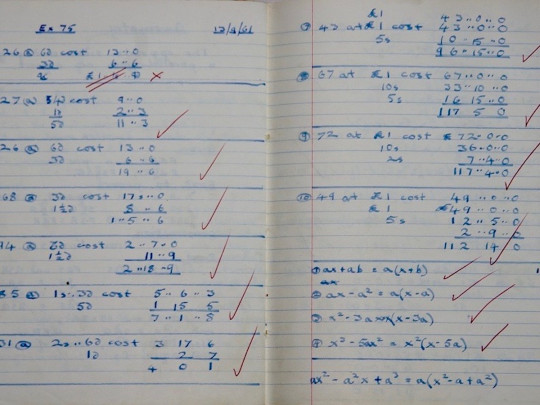 Ex 75 12/9/61
26 @ 6d cost 13 .. 0
3d 6 - 6
£1
27 @ cost 9 .. 0
1d 2 .. 3
5d 11 .. 3
26 @ 6d cost 13 .. 0
3d 6 - 6
19 .. 6
68 @ 3d cost 17 .. 0
1½d 8 .. 6
1 .. 5 .. 6
94 @ 6d cost 2 .. 7 .. 0
1½d 11 .. 9
2 .. 18 .. 9
85 @ 1s .. 3d cost 5 .. 6 .. 3
5d 1 15 5
7 .. 1 .. 8
31 @ 2s .. 6d cost 3 17 6
1d 2 7
4 0 1
£1 43 .. 0 .. 0
43 at £1 cost 43 .. 0 .. 0
5s 10 .. 15 .. 0
96 .. 15 .. 0
67 at £1 cost 67 .. 0 .. 0
10s 33 .. 10 .. 0
5s 16 15 .. 0
117 5 0
72 at £1 cost £72 .. 0 .. 0
10s 36 .. 0 .. 0
2s 7 .. 4 .. 0
117 .. 4 .. 0
49 at £1 cost 49 .. 0 .. 0
£1 49 .. 0 .. 0
5s 12 .. 5 .. 0
2 .. 9 .. 0
112 14 0
① ax + ab = a(x+b)
② ax - a² = a(x-a)
x² - 3ax = x(x-3a)
x³ - 5ax² = x²(x-5a)
ax² - a²x + a³ = a(x² - a + a²)